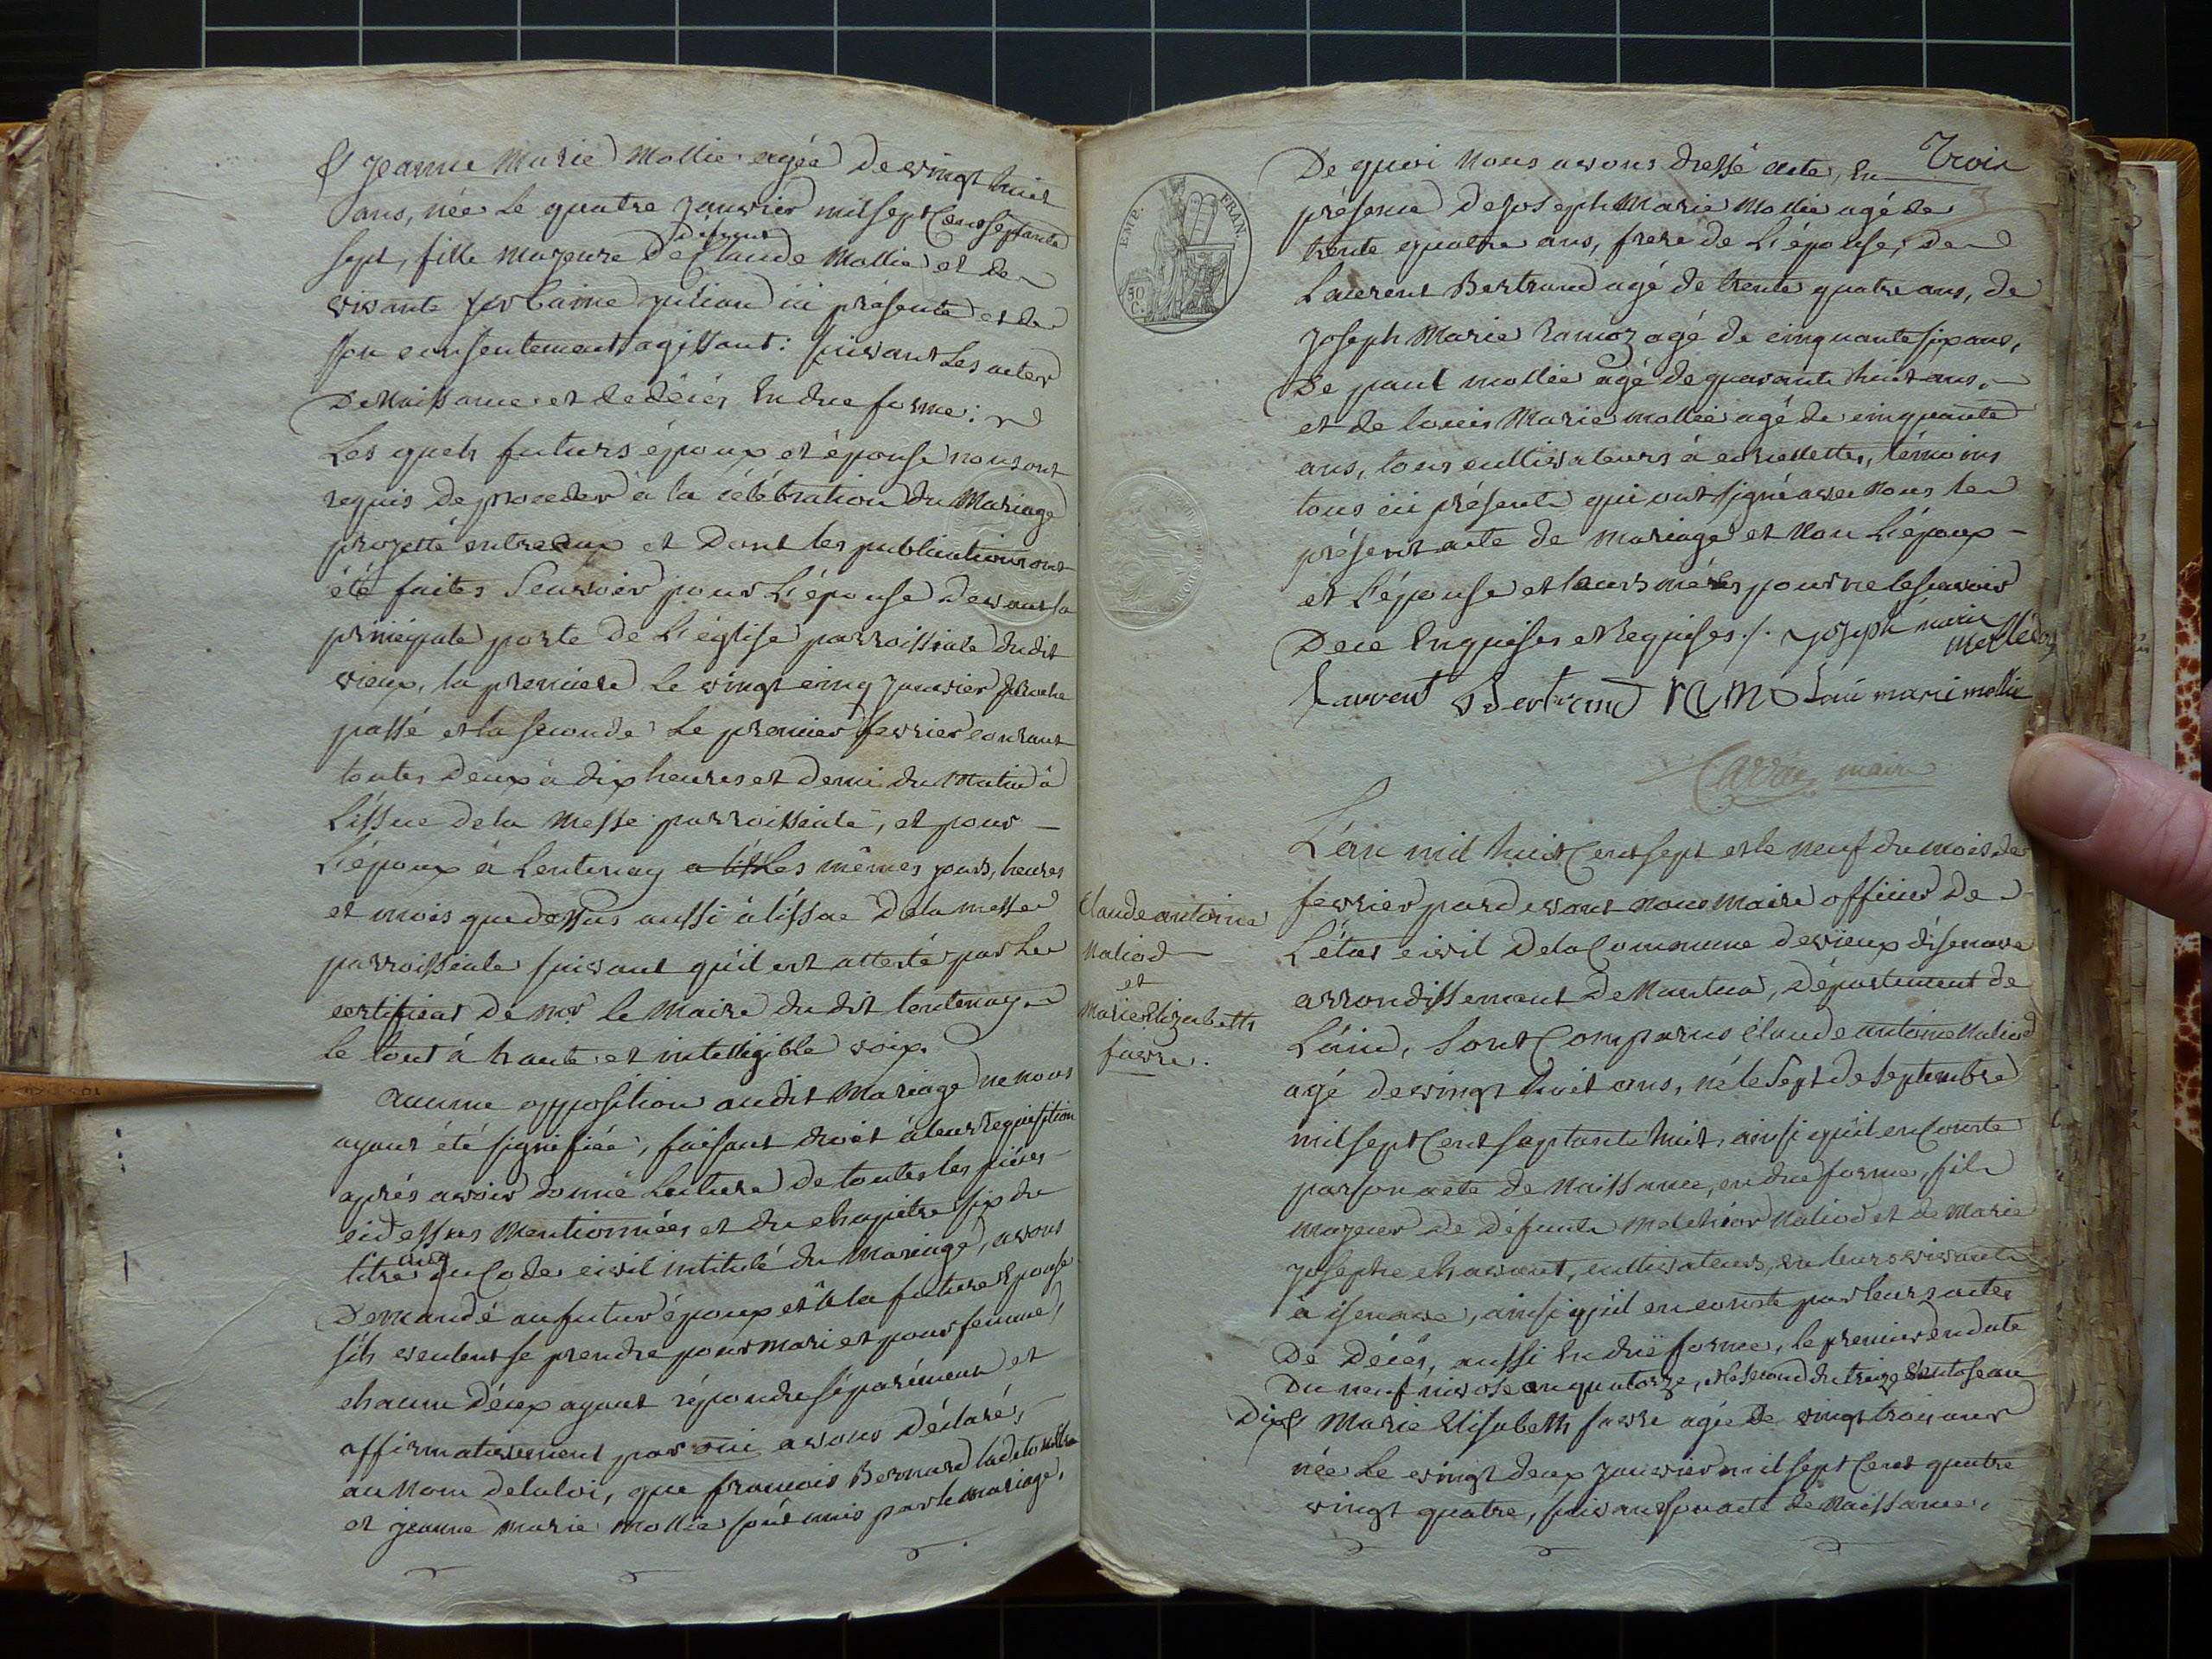 Et jeanne Marie Mollie agée de vingt huit
ans, née le quatre janvier mil sept Cent septante
defunt
sept, fille majeure de Claude Mollie et de
vivante julian ici présente et de
son consentement agissant: suivant les actes
De Naissance et de décés En due forme:
Les quels futurs époux et épouse nous ont
requis de proceder à la célébration du Mariage
projetté entre eux et Dont les publications ont
été faites Sçavoir pour L'épouse devant la
principale porte de L'église parroissiale dudit
vieux, la premiere le vingt cinq janvier proche
passé et la seconde le premier fevrier courant
toutes deux à dix heures et demi du Matin à
L'issue de la Messe parroissiale, et pour
L'époux à Lentenay les mêmes jours, heures
et mois que dessus aussi à lissue De la messe
parroissiale suivant qu'il est attesté par le
certificat de Mr le Maire du dit lentenay
le tout à haute et intelligible voix.
Aucune opposition audit Mariage ne nous
ayant été signifiée, faisant droit à leur Requisition
aprés avoir donné Lecture de toutes les piéces
ci dessus Mentionnées et du chapitre six du
cinq
titre du Code civil intitulé du Mariage, avons
Demandé au futur époux et à la future Epouse
s'ils veulent se prendre pour mari et pour femme,
chacun d'eux ayant répondu séparément et
affirmativement par oui avons Déclaré,
au Nom de la loi, que francois Bernard
et jeanne Marie Mollie sont unis par le Mariage,
EMP. FRAN.
50 C.
Trois
3
De quoi Nous avons dressé acte, En
présence De Joseph Marie Mollie agé de
trente quatre ans, frere de L'épouse, de
Laurent Bertrand agé de trente quatre ans, de
Joseph Marie Ramoz agé de cinquante six ans,
De paul mollie agé de quarante huit ans,
et de louis Marie mollie agé de cinquante
ans, tous cultivateurs à , témoins
tous ici présents qui ont signé avec Nous le
présent acte de Mariage et Non L'époux
et L'épouse et leurs méres pour ne le scavoir
De ce Enquises et Requises ./. joseph marie
Laurent Bertrand Ramo Loui mari mollie
maire
L'an mil huit Cent sept et le neuf du mois de
fevrier par devant nous Maire officier De
L'état civil De la Commune de vieux d'isenave
arrondissement De Nantua, Département de
L'ain, Sont Comparus Claude antoine Naliod
agé de vingt huit ans, né le Sept de Septembre
mil sept Cent septante huit, ainsi qu'il en Conste
par son acte de Naissance, en due forme, fils
majeur de défunts Melchior Naliod et de Marie
Josephe chavant, cultivateurs, en leurs vivants
à isenave, ainsi qu'il en conste par leurs actes
De Décés, aussi En due forme, le premier en date
Du neuf nivose an quatorze, et le second du treize Ventose an
Dix Et Marie Elisabeth favre agée de vingt trois ans
née Le vingt deux janvier mil sept Cent quatre
vingt quatre, suivant son acte de Naissance,
Claude antoine
Naliod
et
Marie Elizabeth
favre.